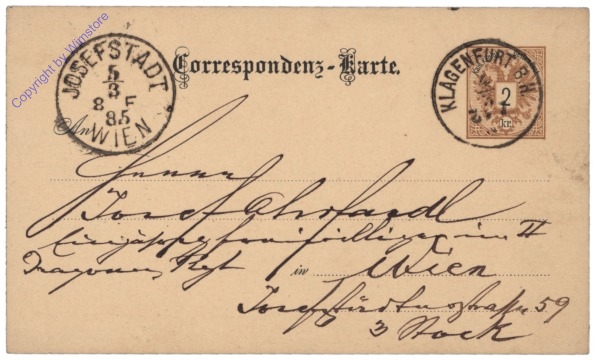 Copyright by Wimstore
JOSEFSTADT
5
3
8 F
85
WIEN
Correspondenz-Karte.
KLAGENFURT B.H.
2
kr.
An
Herrn
Josef
Einjährigfreiwilliger im II
Dragoner Rgt in Wien
Josefstädterstraße 59
3 Stock